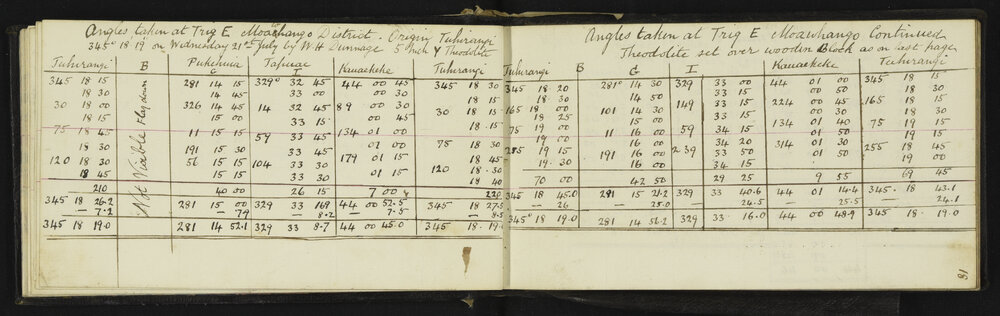 Angles taken at Trig E Moawhango District. Origin Tuhirangi
345° 18' 19" on Wednesday 21st July by W H Dunnage 5 Inch Y Theodolite
Tuhirangi B Pukehuia G Tapuae I Kauaekeke Tuhirangi
345 18 15 281 14 15 329° 32 45 44 00 45 345 18 30
18 30 14 45 33 00 00 30 18 15
30 18 00 326 14 45 14 32 45 89 00 30 30 18 15
18 15 15 00 33 15 00 45 18 15
75 18 45 11 15 15 59 33 45 134 01 00 75 18 30
18 30 191 15 30 33 45 01 00 18 45
120 18 30 56 15 15 104 33 30 179 01 15 120 18 30
18 45 15 15 33 30 01 15 18 40
Not Visible Flag down
210 40 00 26 15 7 00 220
345 18 26.2 281 15 00 329 33 16.9 44 00 52.5 345 18 27.5
— 7.2 — 7.9 — 8.2 — 7.5 — 8.5
345 18 19.0 281 14 52.1 329 33 8.7 44 00 45.0 345 18 19.0
Angles taken at Trig E Moawhango Continued
Theodolite set over wooden Block as on last page
Tuhirangi B G I Kauaekeke Tuhirangi
345 18 20 281° 14 30 329 33 00 44 01 00 345 18 15
18 30 14 50 33 00 00 50 18 30
165 18 00 101 14 30 149 33 15 224 00 45 165 18 15
18 25 15 00 33 15 134 01 40 18 30
75 19 00 11 16 00 59 34 15 01 50 75 19 15
19 00 16 00 34 20 314 01 30 19 15
255 19 15 191 16 00 239 33 50 01 50 255 18 45
19 30 16 00 34 15 19 00
70 00 42 50 29 25 9 55 69 45
345 18 45.0 281 15 21.2 329 33 40.6 44 01 14.4 345 18 43.1
— 26 — 25.0 — 24.5 — 25.5 — 24.1
345° 18 19.0 281 14 52.2 329 33 16.0 44 00 48.9 345 18 19.0
18